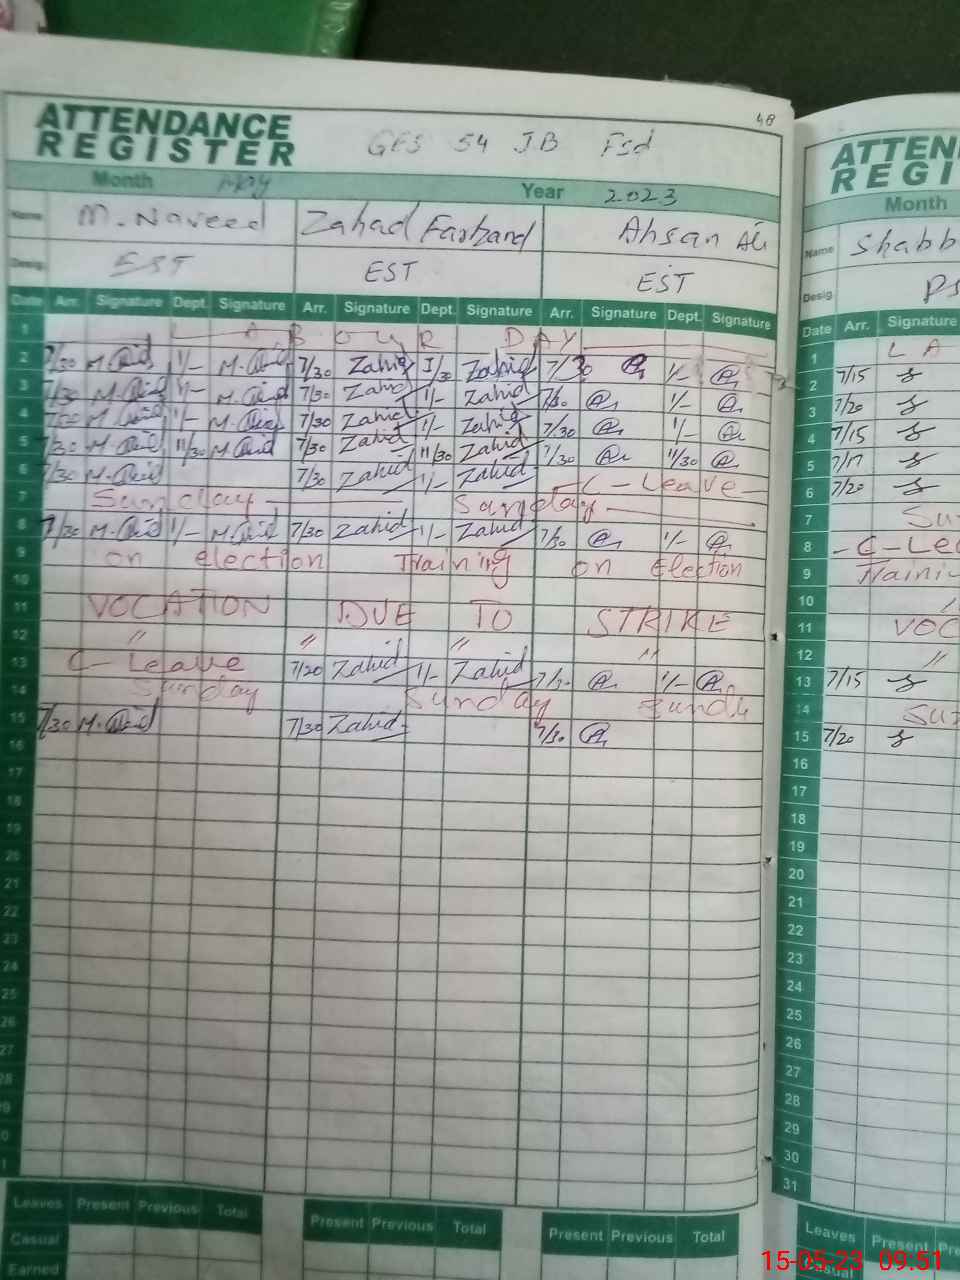 48
ATTENDANCE REGISTER GES 54 J.B Fsd
Month May Year 2023
Name M. Naveed Zahad Farhand Ahsan Ali
Desig. EST EST EST
Date Arr. Signature Dept. Signature Arr. Signature Dept. Signature Arr. Signature Dept. Signature
1 L A B O U R D A Y
2 7/30 1/- 7/30 Zahid 1/30 Zahid 7/30 1/-
3 7/30 1/- 7/30 Zahid 1/- Zahid 7/30 1/-
4 7/30 1/- 7/30 Zahid 1/- Zahid 7/30 1/-
5 7/30 11/30 7/30 Zahid 11/30 Zahid 7/30 11/30
6 7/30 7/30 Zahid 1/- Zahid C - Leave
7 Sunday Sunday
8 7/30 1/- 7/30 Zahid 1/- Zahid 7/30 1/-
9 on election Training on Election
10
11 VOCATION DUE TO STRIKE
12 " " " "
13 C - Leave 7/20 Zahid 1/- Zahid 7/30 1/-
14 Sunday Sunday Sunda
15 7/30 7/30 Zahid 7/30
16
17
18
19
20
21
22
23
24
25
26
27
28
9
0
1
Leaves Present Previous Total Present Previous Total Present Previous Total
Casual
Earned
ATTEN
REGI
Month
Name Shabb
Desig PS
Date Arr. Signature
1 L A
2 7/15
3 7/20
4 7/15
5 7/17
6 7/20
7 Su
8 - C - Lea
9 Traini
10
11 VOC
12 "
13 7/15
14 Su
15 7/20
16
17
18
19
20
21
22
23
24
25
26
27
28
29
30
31
Leaves Present Pre
Casual
15-05-23 09:51